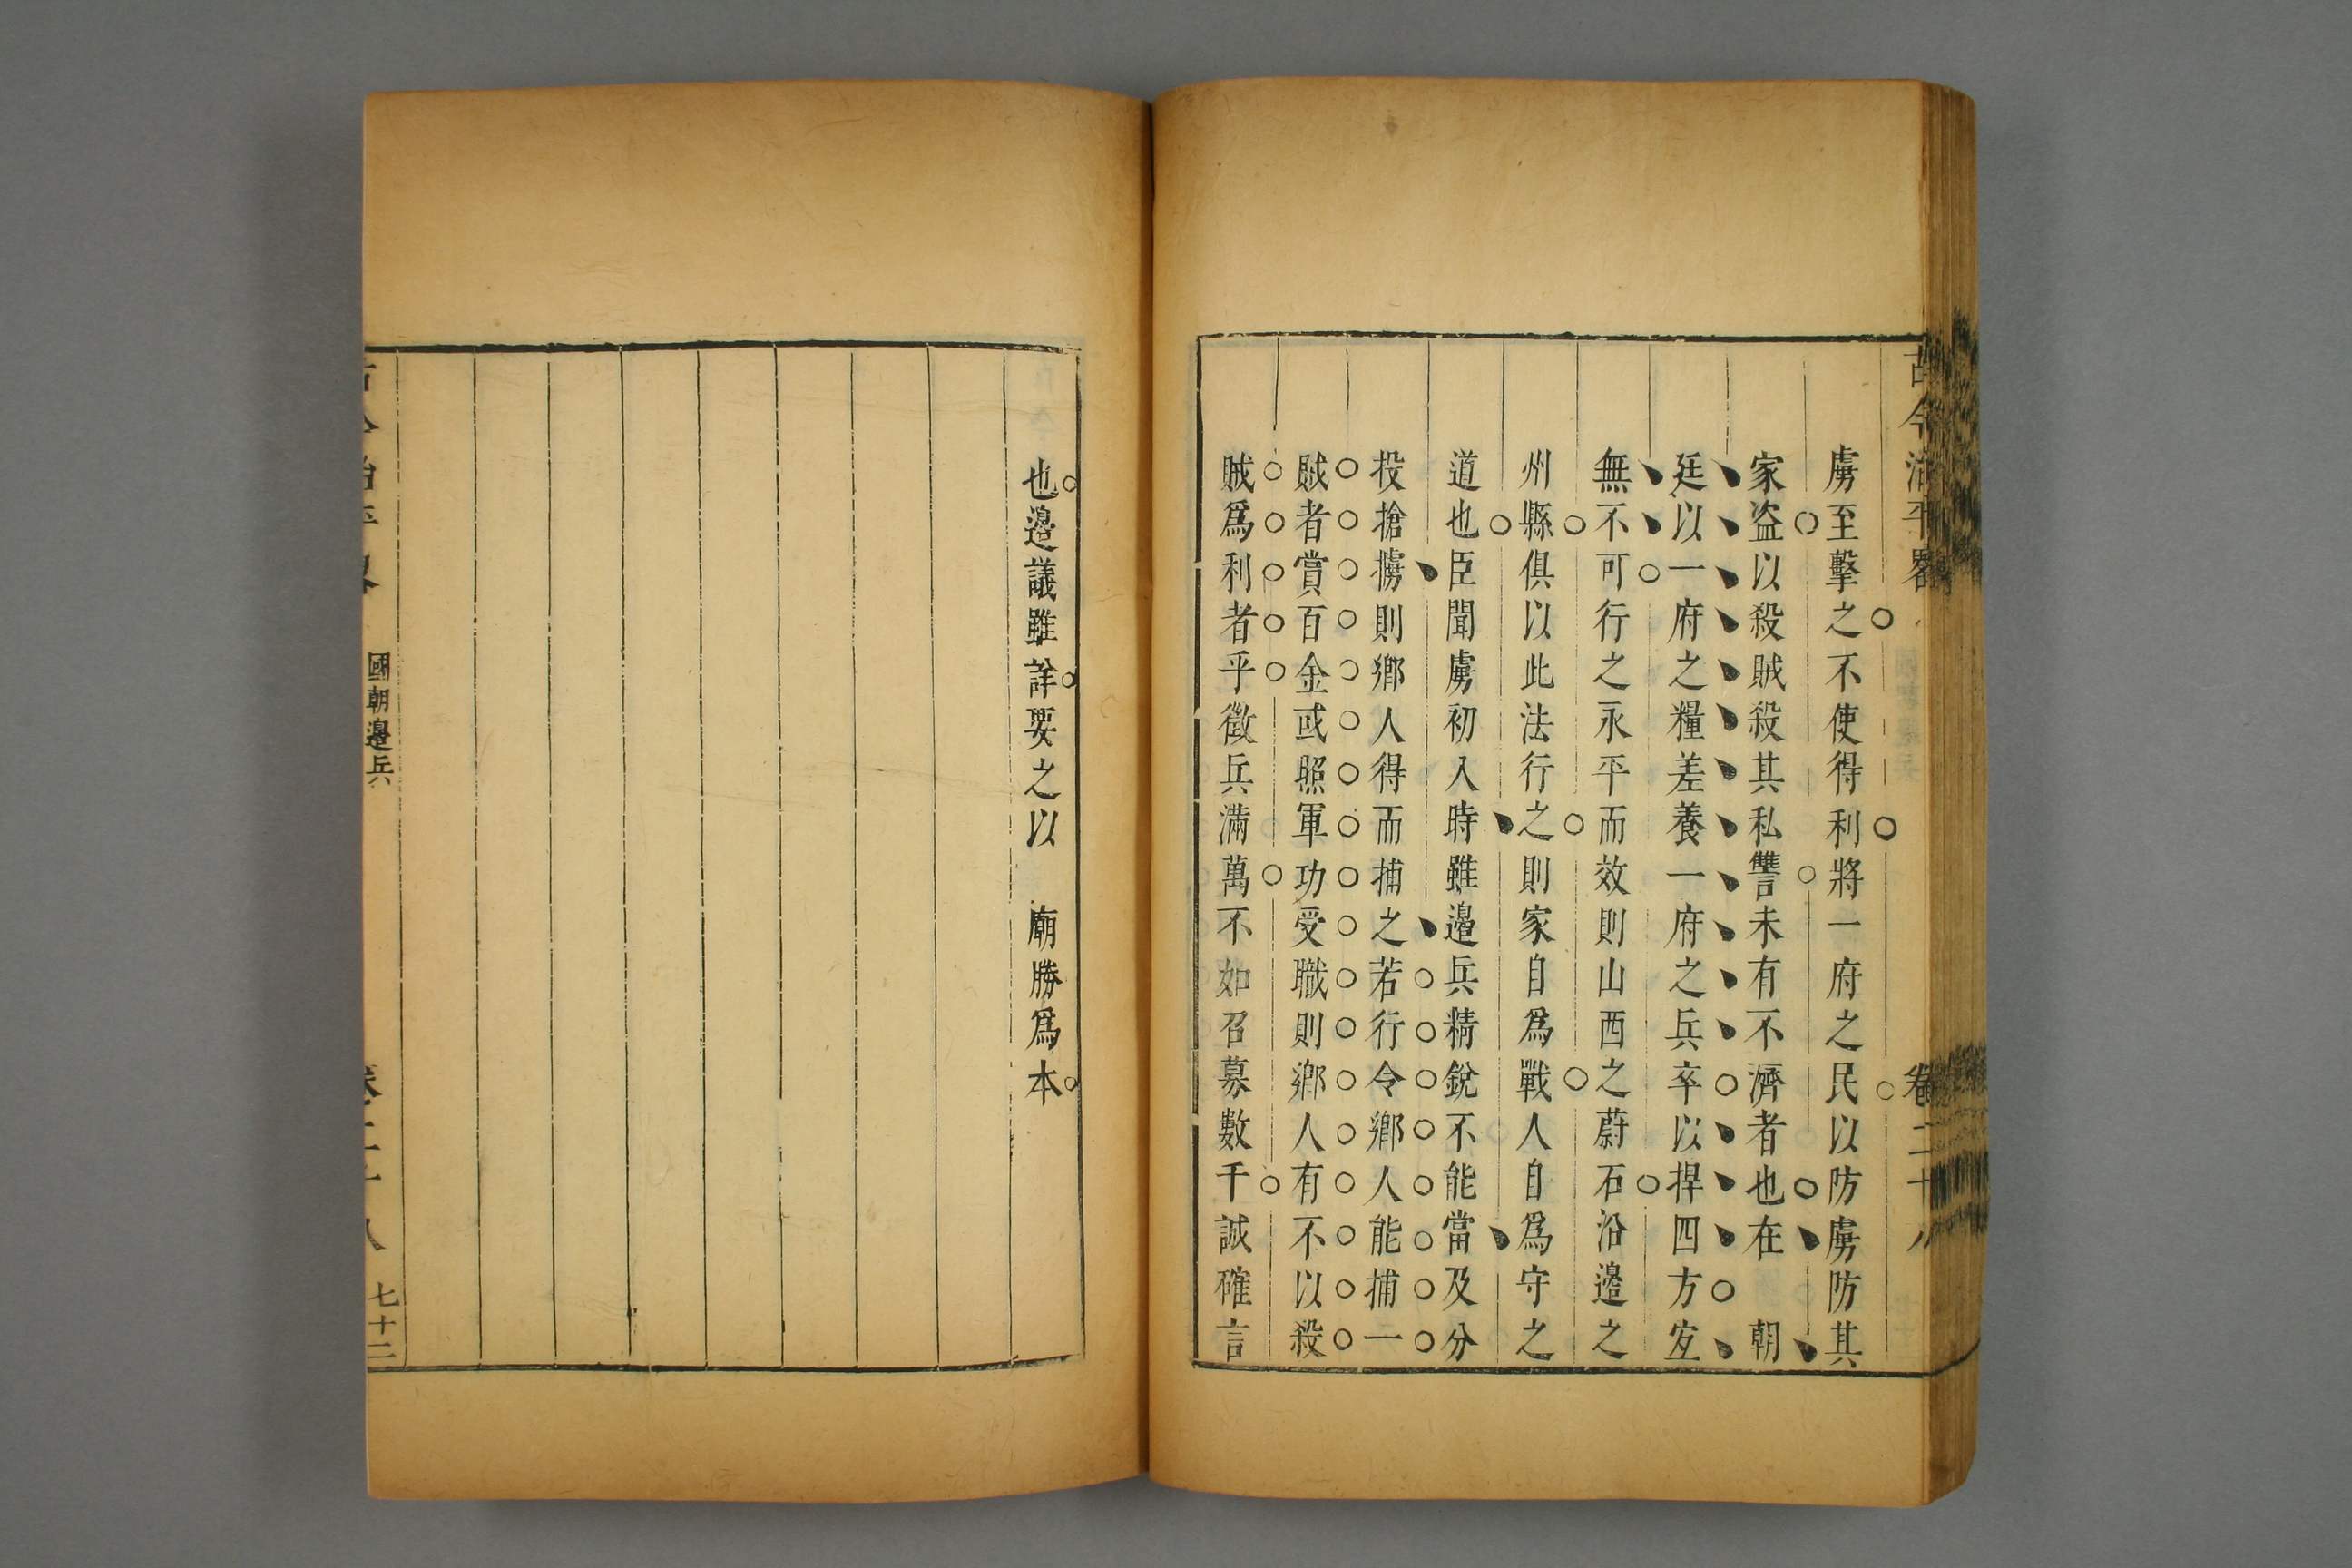 古今治平畧 卷二十八
虜至擊之不使得利將一府之民以防虜防其
家盗以殺賊殺其私讐未有不濟者也在 朝
廷以一府之糧差養一府之兵卒以捍四方㝎
無不可行之永平而效則山西之蔚石沿邉之
州縣俱以此法行之則家自爲戰人自爲守之
道也臣聞虜初入時雖邉兵精銳不能當及分
投搶擄則鄉人得而捕之若行令鄉人能捕一
賊者賞百金或照軍功受職則鄉人有不以殺
賊爲利者乎徵兵滿萬不如召募數千誠確言
也邉議雖詳要之以 廟勝爲本
古今治平畧 國朝邉兵 卷二十八 七十二